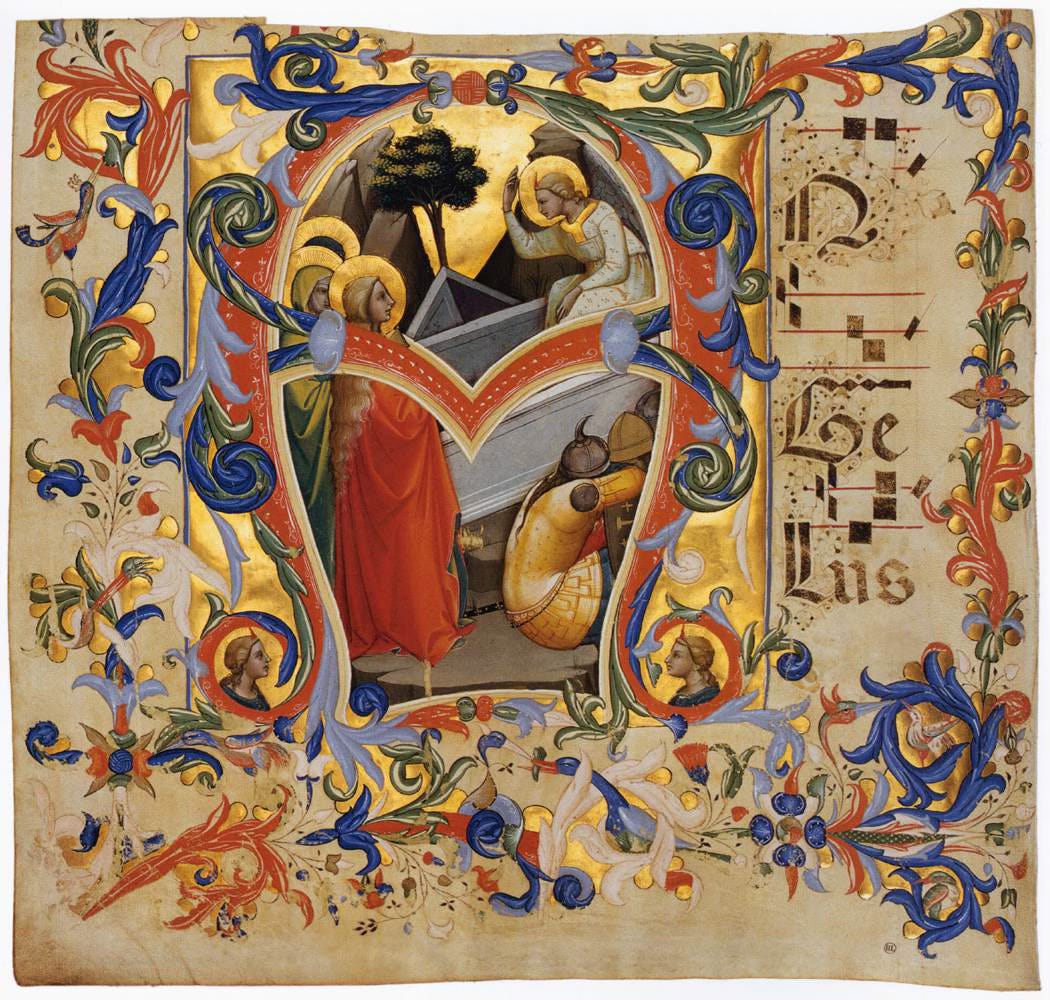 AN
Ge
Lus